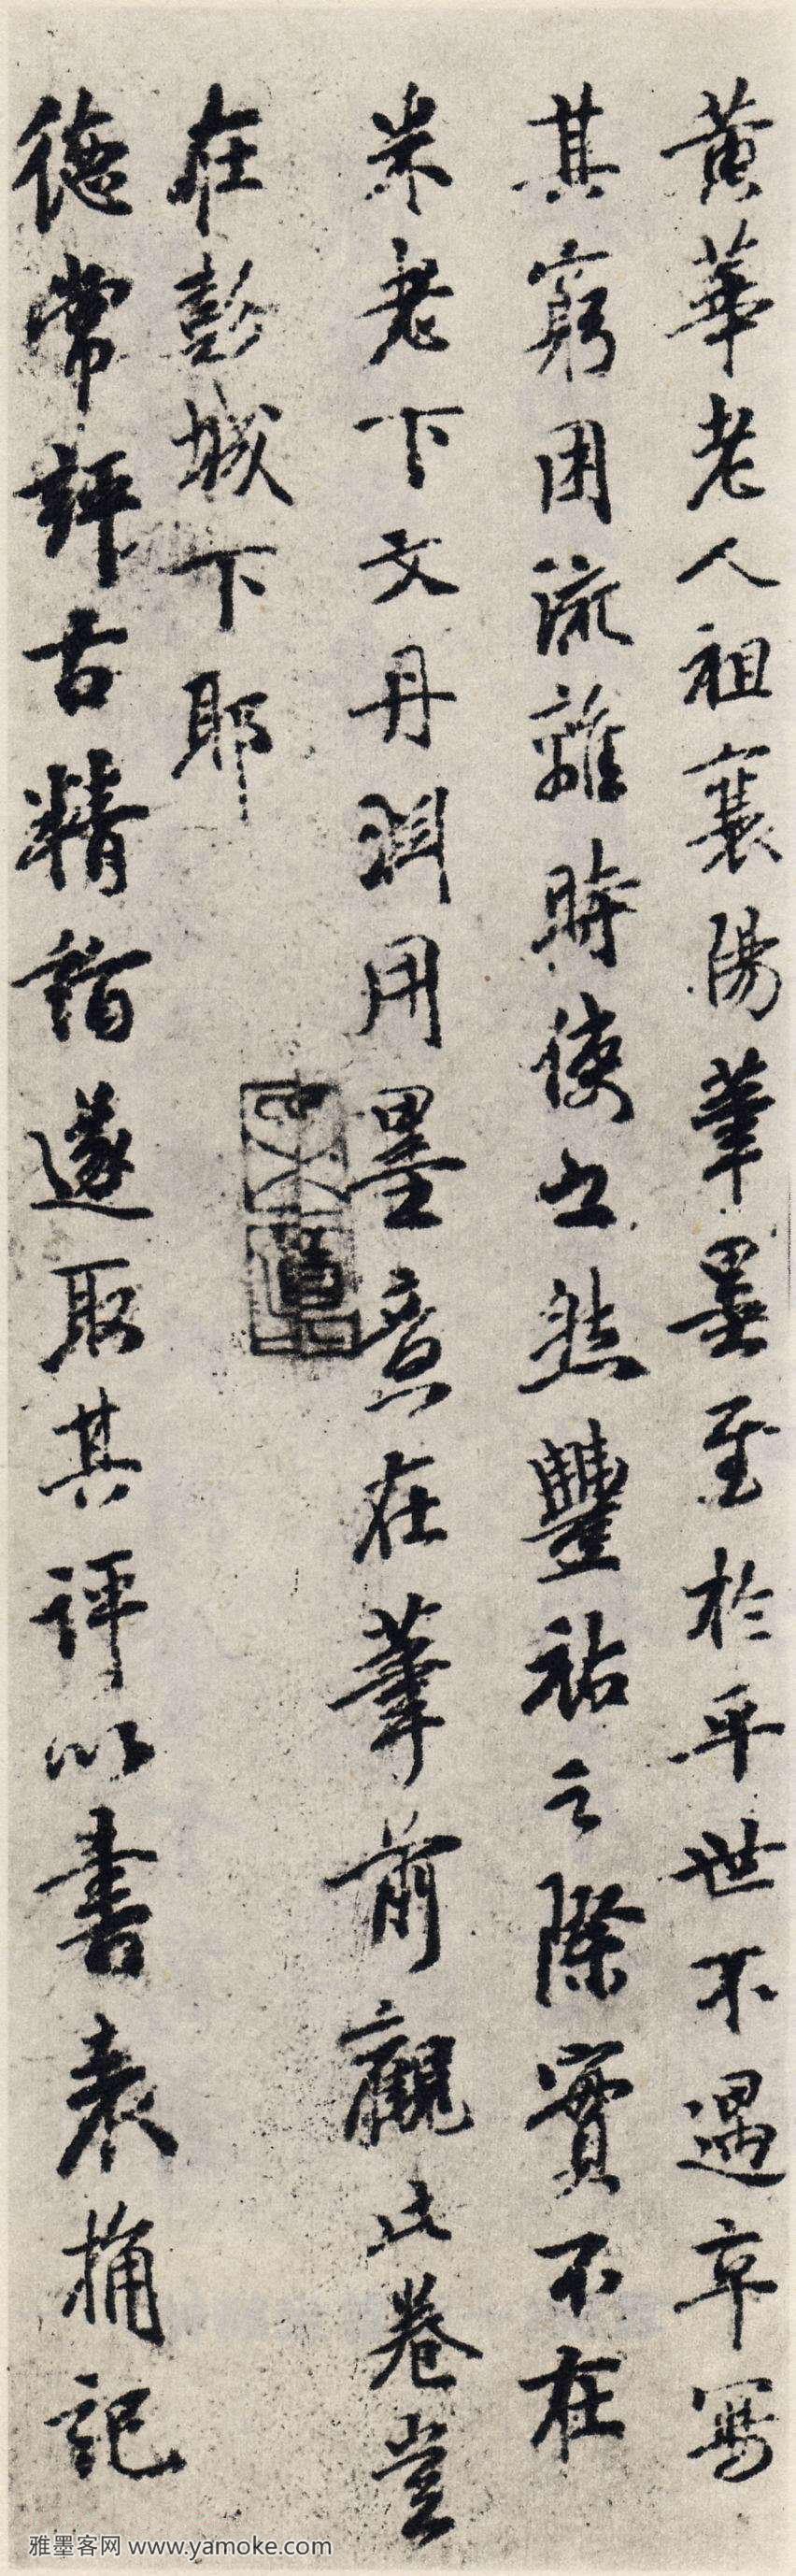 黄華老人祖襄陽筆墨至於平世不遇卒寫
其窮困流離時使之然豐祐之際實不在
米老下文丹淵用墨意在筆前觀此卷豈
在彭城下耶
德常評古精詣遂取其評以書表桷記
雅墨客网 www.yamoke.com